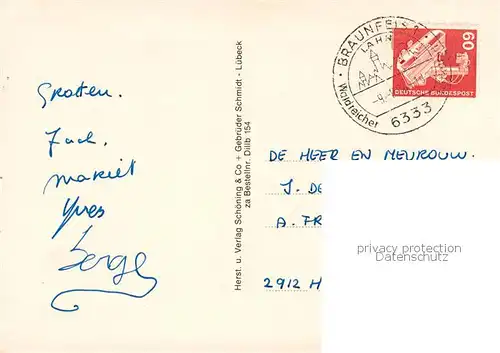 Groeten.
Jack.
Mariet
Yves
Serge
Herst. u. Verlag Schöning & Co + Gebrüder Schmidt - Lübeck
za Bestellnr. Dillb 154
BRAUNFELS
LAHN
Waldreicher
6333
60
DEUTSCHE BUNDESPOST
DE HEER EN MEVROUW.
J. DE
A. FR
2912 H
privacy protection
Datenschutz